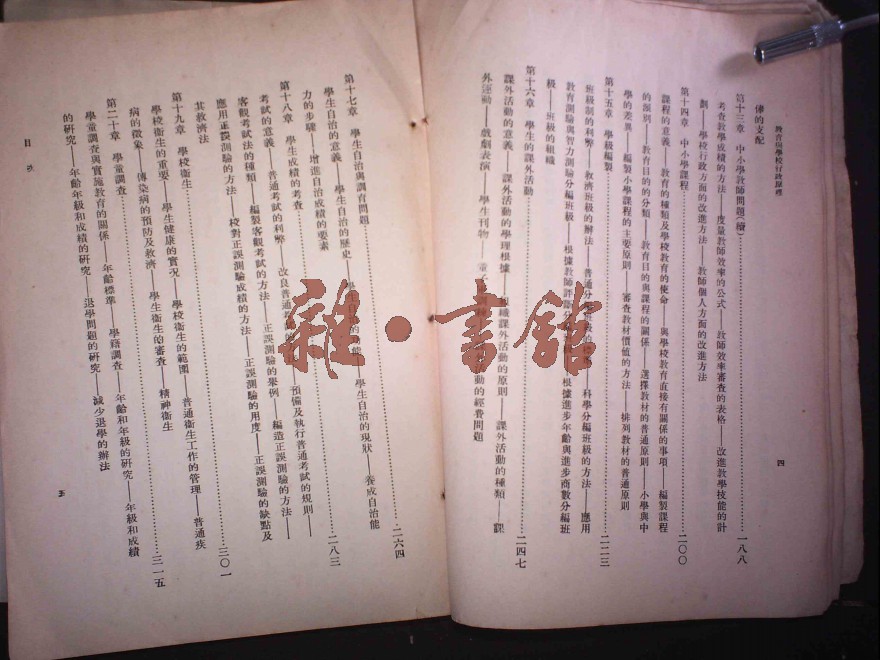 教育與學校行政原理
四
俸的支配
第十三章 中小學教師問題(續)……一八八
考查教學成績的方法——度量教師效率的公式——教師效率審查的表格——改進教學技能的計
劃——學校行政方面的改進方法——教師個人方面的改進方法
第十四章 中小學課程……二〇〇
課程的意義——教育的種類及學校教育的使命——與學校教育直接有關係的事項——編製課程
的派別——教育目的的分類——教育目的與課程的關係——選擇教材的普通原則——小學與中
學的差異——編製小學課程的主要原則——審查教材價值的方法——排列教材的普通原則
第十五章 學級編製……二二三
班級制的利弊——救濟班級的辦法——普通分
科學分編班級的方法——應用
教育測驗與智力測驗分編班級——根據教師評
根據進步年齡與進步商數分編班
級——班級的組織
第十六章 學生的課外活動……二四七
課外活動的意義——課外活動的學理根據——
織課外活動的原則——課外活動的種類——課
外運動——戲劇表演——學生刊物——童子
活動的經費問題
第十七章 學生自治與訓育問題……二六四
學生自治的意義——學生自治的歷史——學生
學生自治的現狀——養成自治能
力的步驟——增進自治成績的要素
第十八章 學生成績的考查……二八三
考試的意義——普通考試的利弊——改良普通考
預備及執行普通考試的規則——
客觀考試法的種類——編製客觀考試的方法——正誤測驗的舉例——編造正誤測驗的方法——
應用正誤測驗的方法——校對正誤測驗成績的方法——正誤測驗的用度——正誤測驗的缺點及
其救濟法
第十九章 學校衞生……三〇一
學校衞生的重要——學生健康的實況——學校衞生的範圍——普通衞生工作的管理——普通疾
病的徵象——傳染病的預防及救濟——學生衞生的審查——精神衞生
第二十章 學童調查……三一五
學童調查與實施教育的關係——年齡標準——學籍調查——年齡和年級的研究——年級和成績
的研究——年齡年級和成績的研究——退學問題的研究——減少退學的辦法
目
五
雜·書館